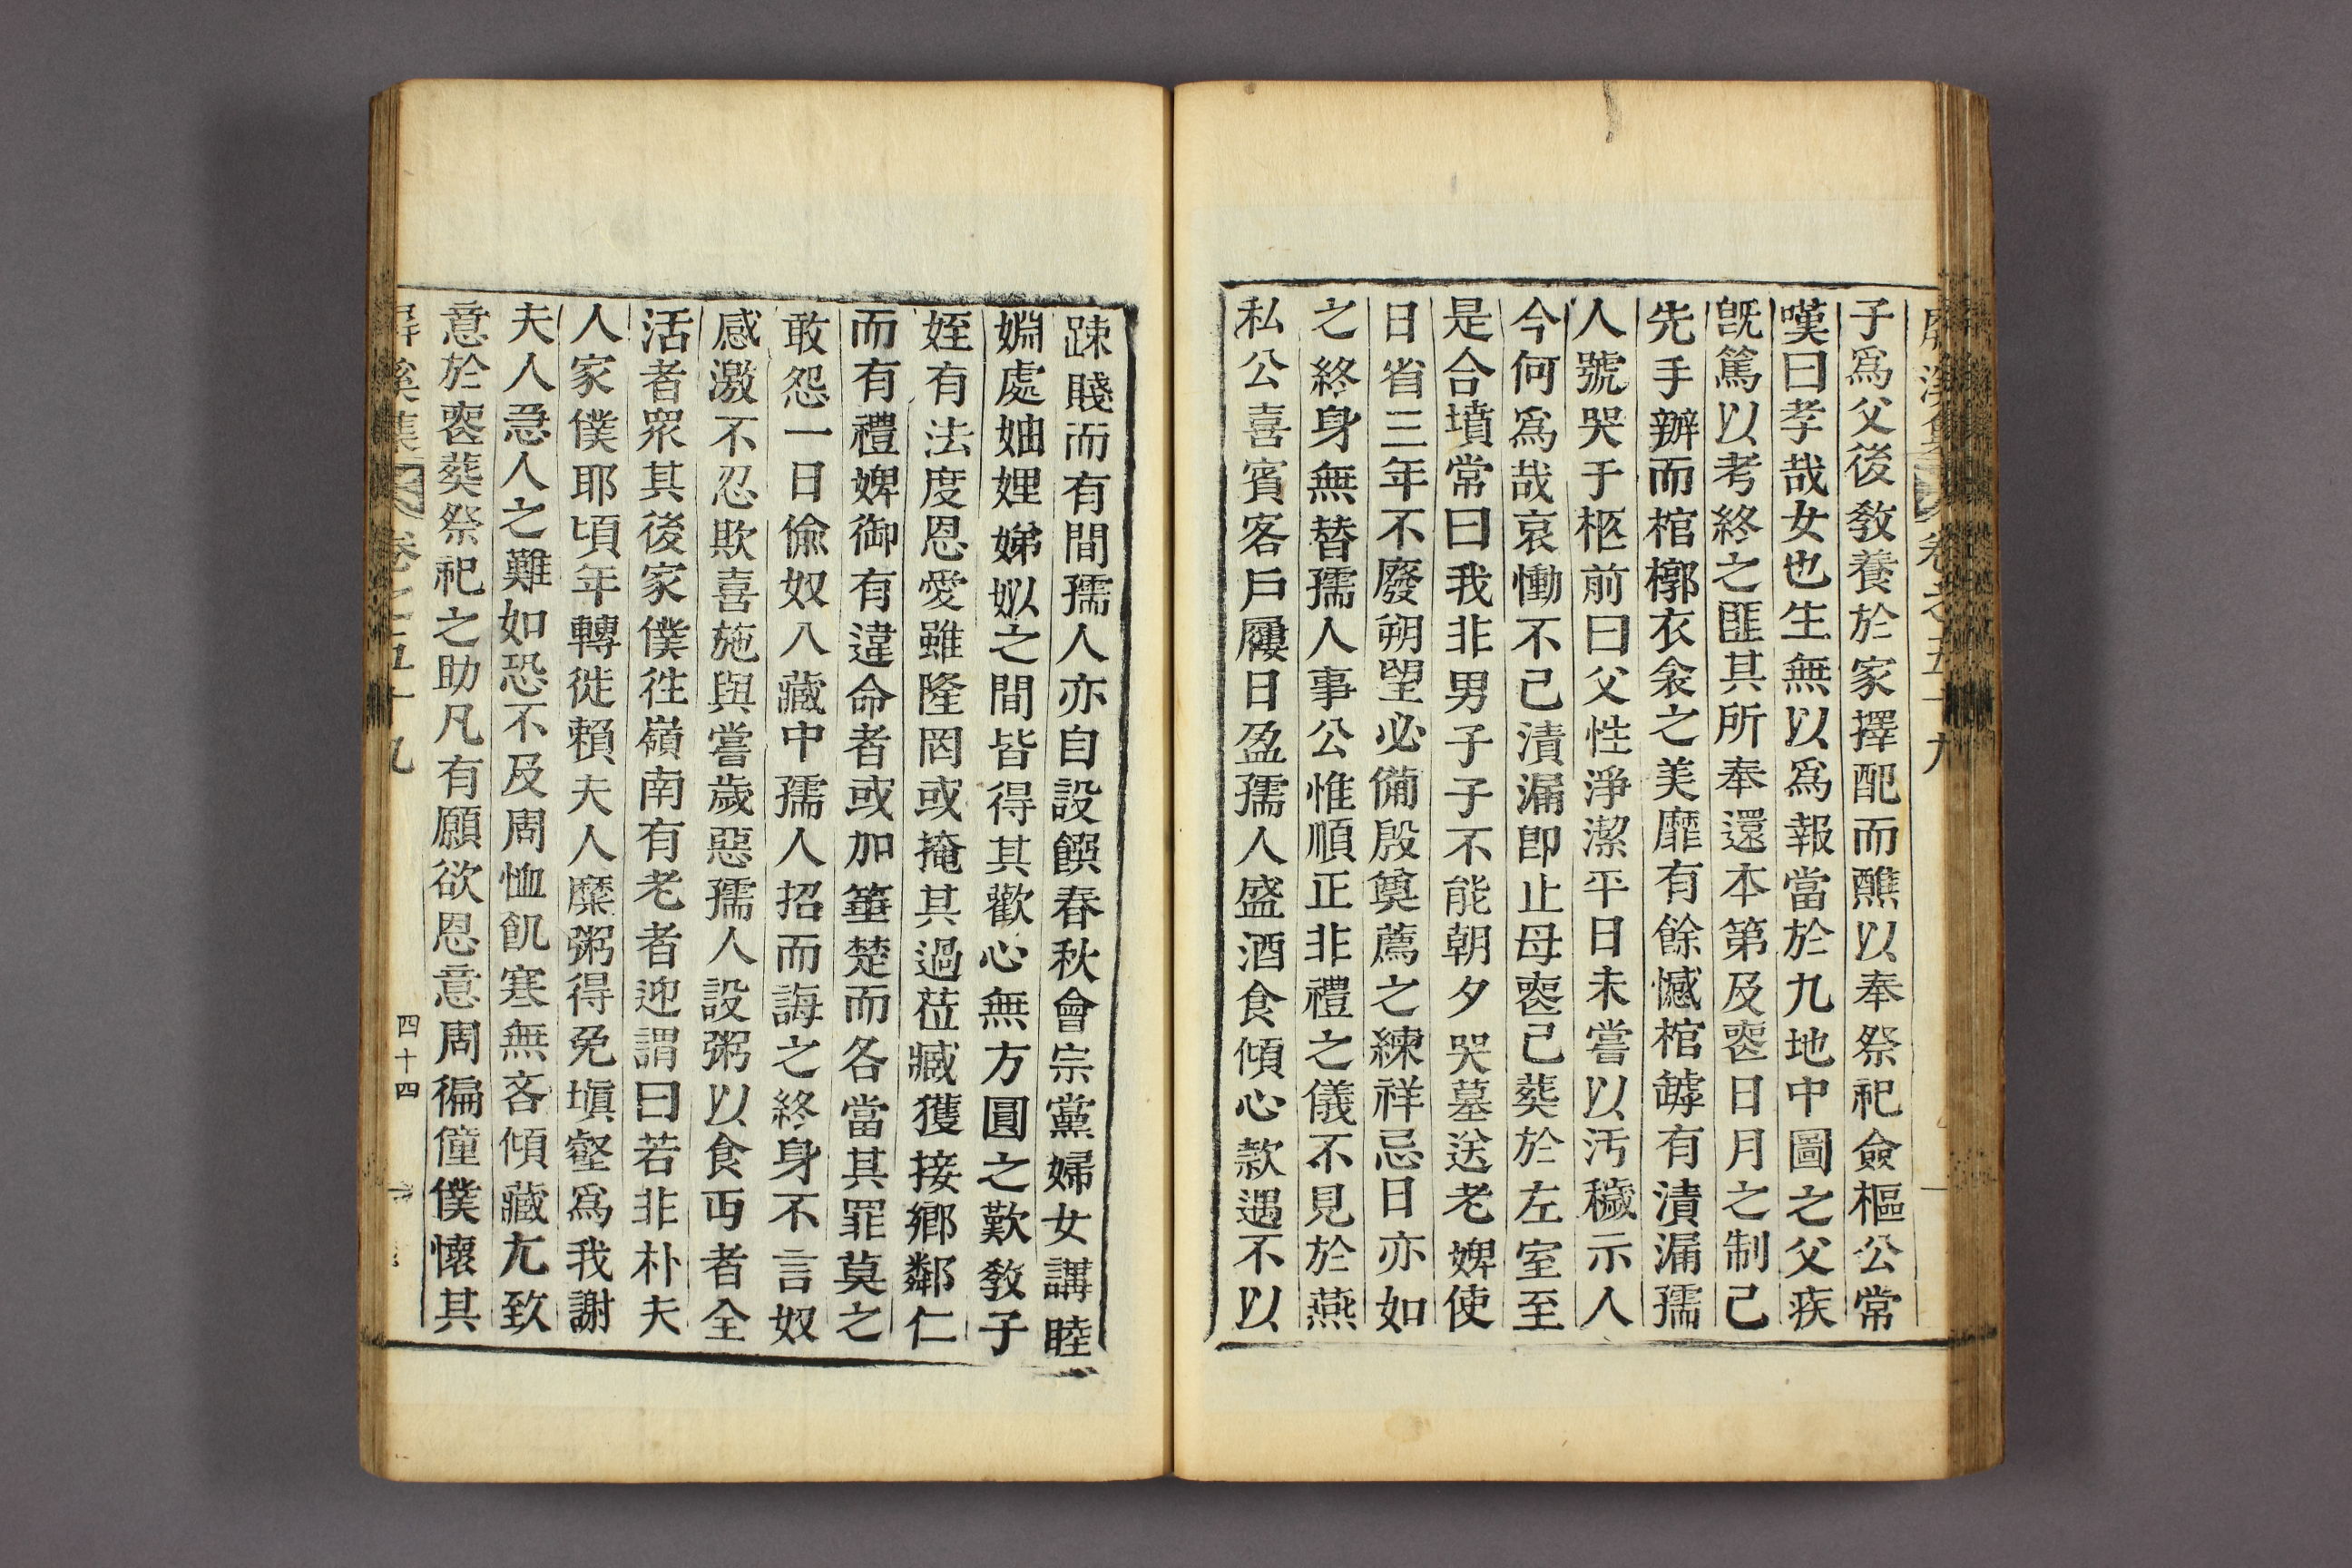 屏溪集 卷之五十九
子爲父後敎養於家擇配而醮以奉祭祀僉樞公常
嘆曰孝哉女也生無以爲報當於九地中圖之父疾
旣篤以考終之匪其所奉還本第及喪日月之制己
先手辦而棺槨衣衾之美靡有餘憾棺罅有漬漏孺
人號哭于柩前曰父性淨潔平日未嘗以汚穢示人
今何爲哉哀慟不己漬漏卽止母喪己葬於左室至
是合墳常曰我非男子子不能朝夕哭墓送老婢使
日省三年不廢朔望必備殷奠薦之練祥忌日亦如
之終身無替孺人事公惟順正非禮之儀不見於燕
私公喜賓客戶屨日盈孺人盛酒食傾心款遇不以
踈賤而有間孺人亦自設饌春秋會宗黨婦女講睦
婣處妯娌娣姒之間皆得其歡心無方圓之歎敎子
姪有法度恩愛雖隆罔或掩其過莅臧獲接鄕鄰仁
而有禮婢御有違命者或加箠楚而各當其罪莫之
敢怨一日偸奴入藏中孺人招而誨之終身不言奴
感激不忍欺喜施與嘗歲惡孺人設粥以食丏者全
活者眾其後家僕徃嶺南有老者迎謂曰若非朴夫
人家僕耶頃年轉徙賴夫人糜粥得免塡壑爲我謝
夫人急人之難如恐不及周恤飢寒無吝傾藏尤致
意於喪葬祭祀之助凡有願欲恩意周徧僮僕懷其
屏溪集 卷之五十九 四十四